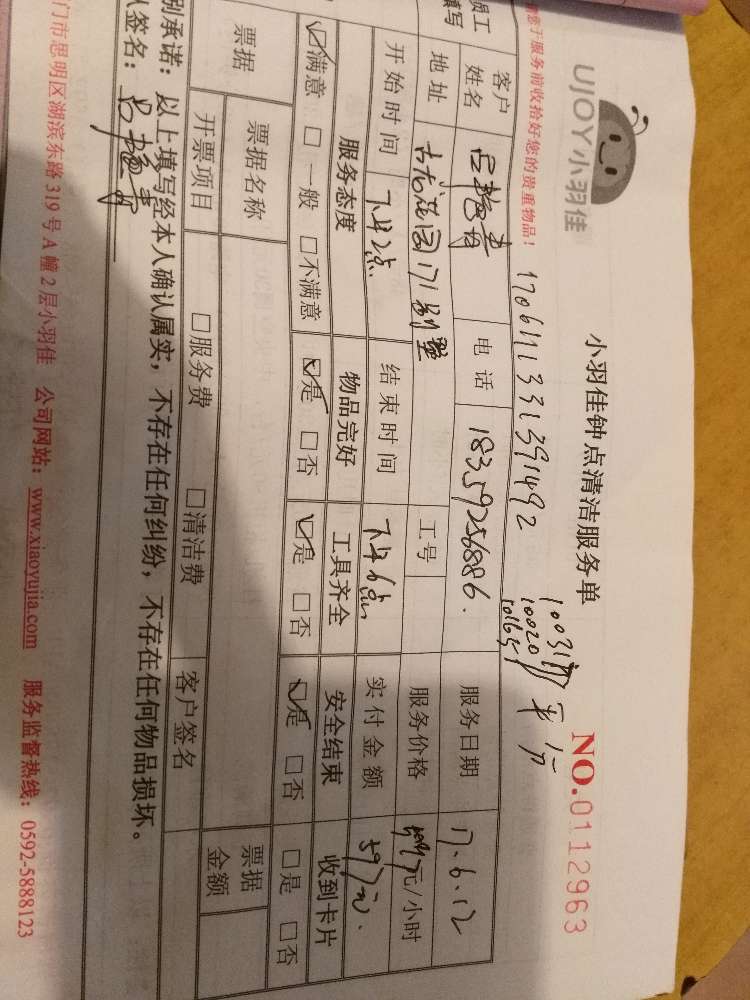 UJOY小羽佳
小羽佳钟点清洁服务单
NO.0112963
您于服务前收拾好您的贵重物品！
10020
平台
员工
填写
客户
姓名
电话 18359256886.
服务日期 17.6.12
地址 古龙花园 别墅
工号
服务价格 元/小时
开始时间 下午2点
结束时间 下午6点
实付金额 597元.
服务态度 物品完好 工具齐全 安全结束 收到卡片
☑满意 □一般 □不满意 ☑是 □否 ☑是 □否 ☑是 □否 □是 □否
票据 票据名称 票据
金额
开票项目 □服务费 □清洁费 客户签名
别承诺：以上填写经本人确认属实，不存在任何纠纷，不存在任何物品损坏。
人签名：
门市思明区湖滨东路319号A幢2层小羽佳 公司网站：www.xiaoyujia.com 服务监督热线：0592-5888123